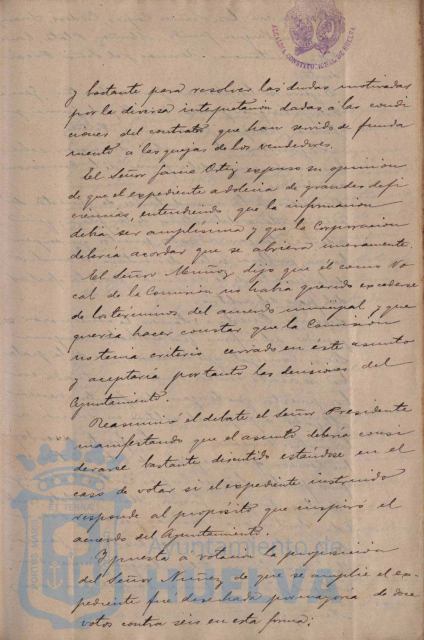 ALCALDIA CONSTITUCIONAL DE HUELVA
y bastante para resolver las dudas motivadas
por la diversa interpretación dadas a las condi
ciones del contrato que han servido de funda
mento a las quejas de los vendedores.
El Señor García Ortiz expuso su opinion
de que el expediente adolecia de grandes defi
ciencias, entendiendo que la informacion
debia ser amplisima y que la Corporacion
deberia acordar que se abriera nuevamente.
El Señor Muñoz dijo que él como Vo
cal de la Comisión no habia querido excederse
de los terminos del acuerdo municipal y que
queria hacer constar que la Comision
no tenia criterio cerrado en éste asunto
y aceptaria por tanto las decisiones del
Ayuntamiento.
Reasumió el debate el Señor Presidente
manifestando que el asunto deberia consi
derarse bastante discutido estandose en el
caso de votar si el expediente instruido
responde al propósito que inspiró el
acuerdo del Ayuntamiento.
Y puesta a votacion la proposicion
del Señor Nuñez de que se amplie el ex
pediente fue desechada por mayoria de doce
votos contra seis en esta forma:
Ayuntamiento de
HUELVA